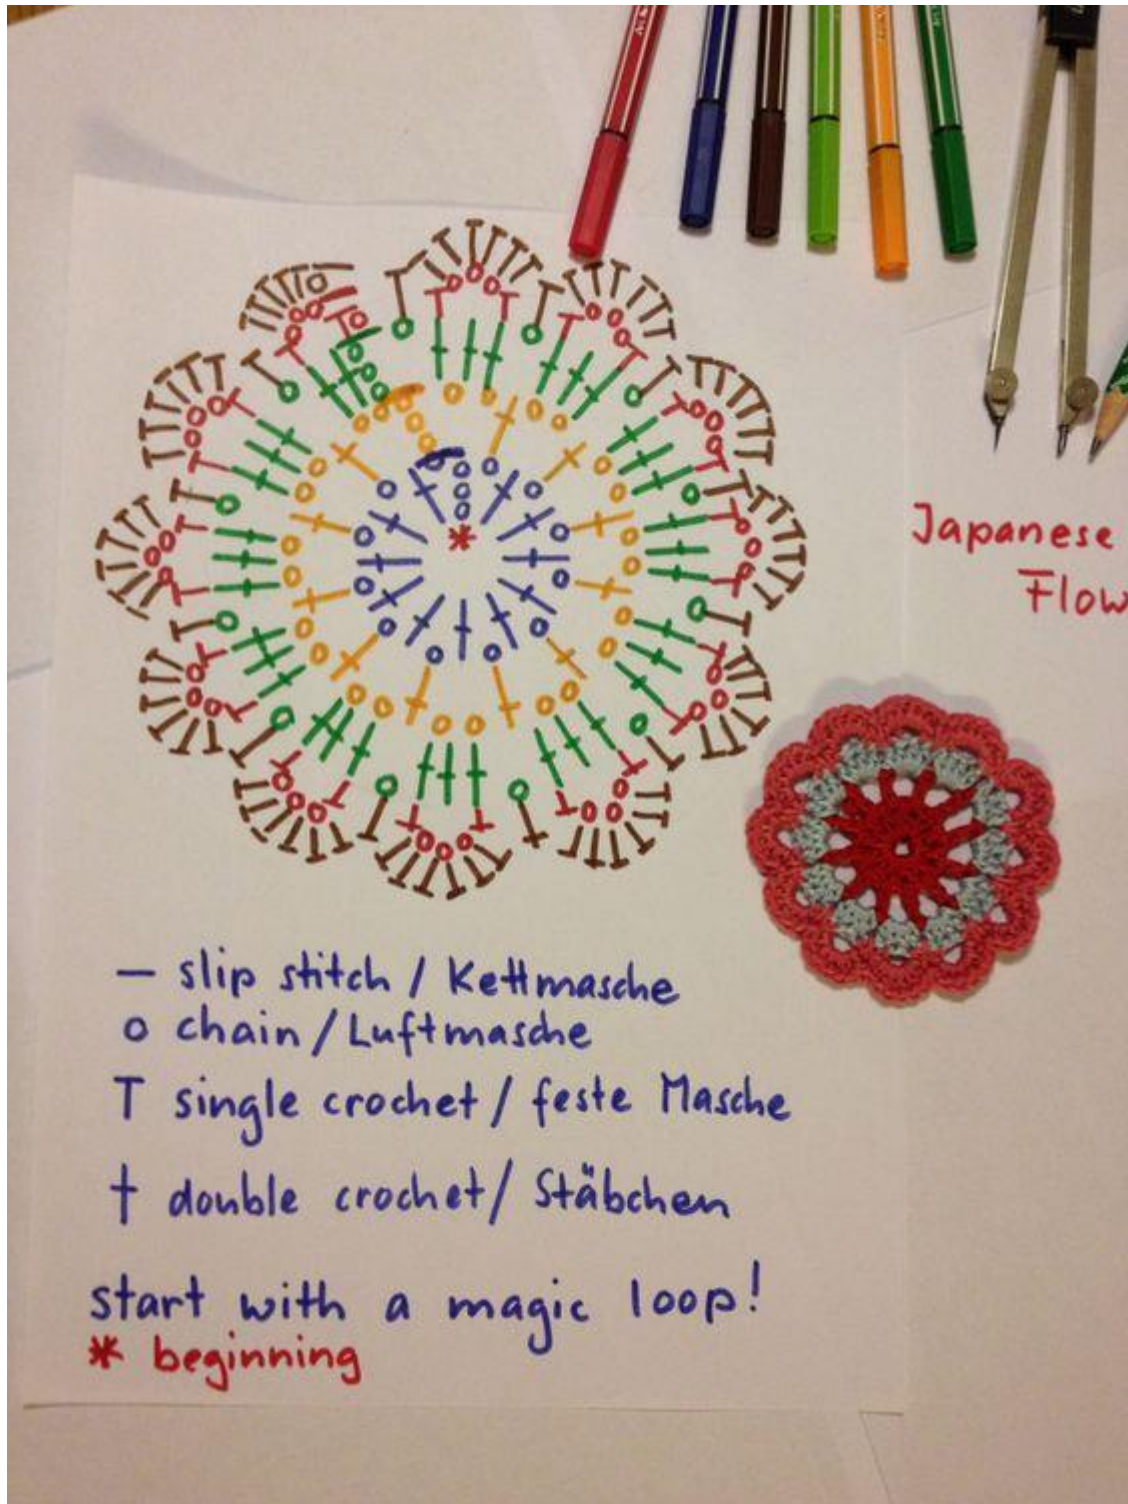 Japanese
Flow
— slip stitch / Kettmasche
o chain / Luftmasche
T single crochet / feste Masche
† double crochet / Stäbchen
start with a magic loop!
* beginning